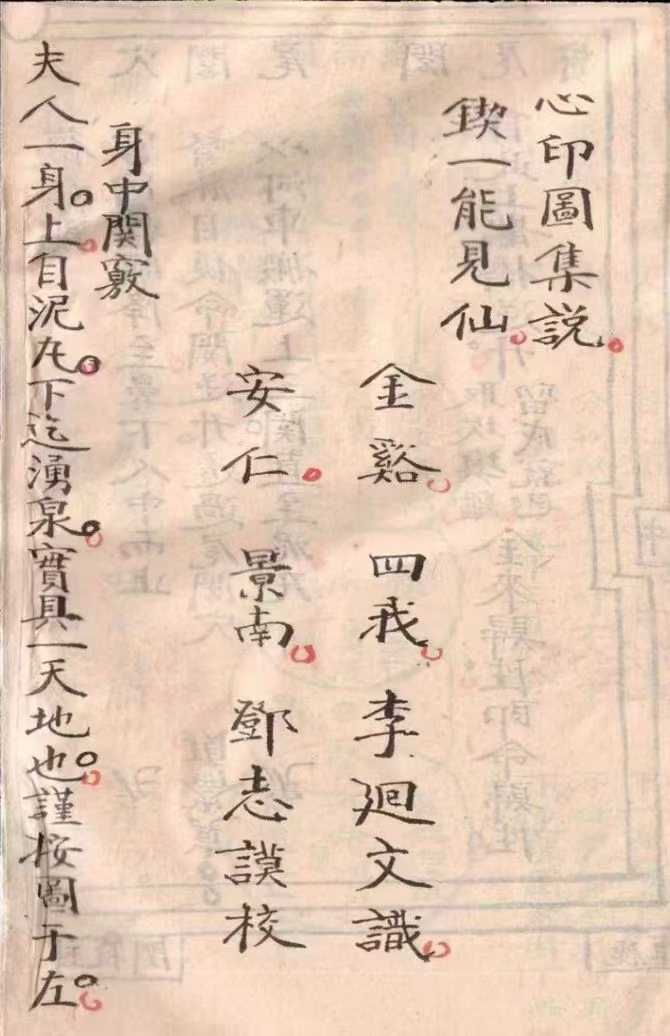 心印圖集説。
鍥一能見仙。
金谿。四我。李廻文識。
安仁。景南。鄧志謨校
身中関竅
夫人一身。上自泥丸。下迄湧泉。實具一天地也。謹按圖于左。